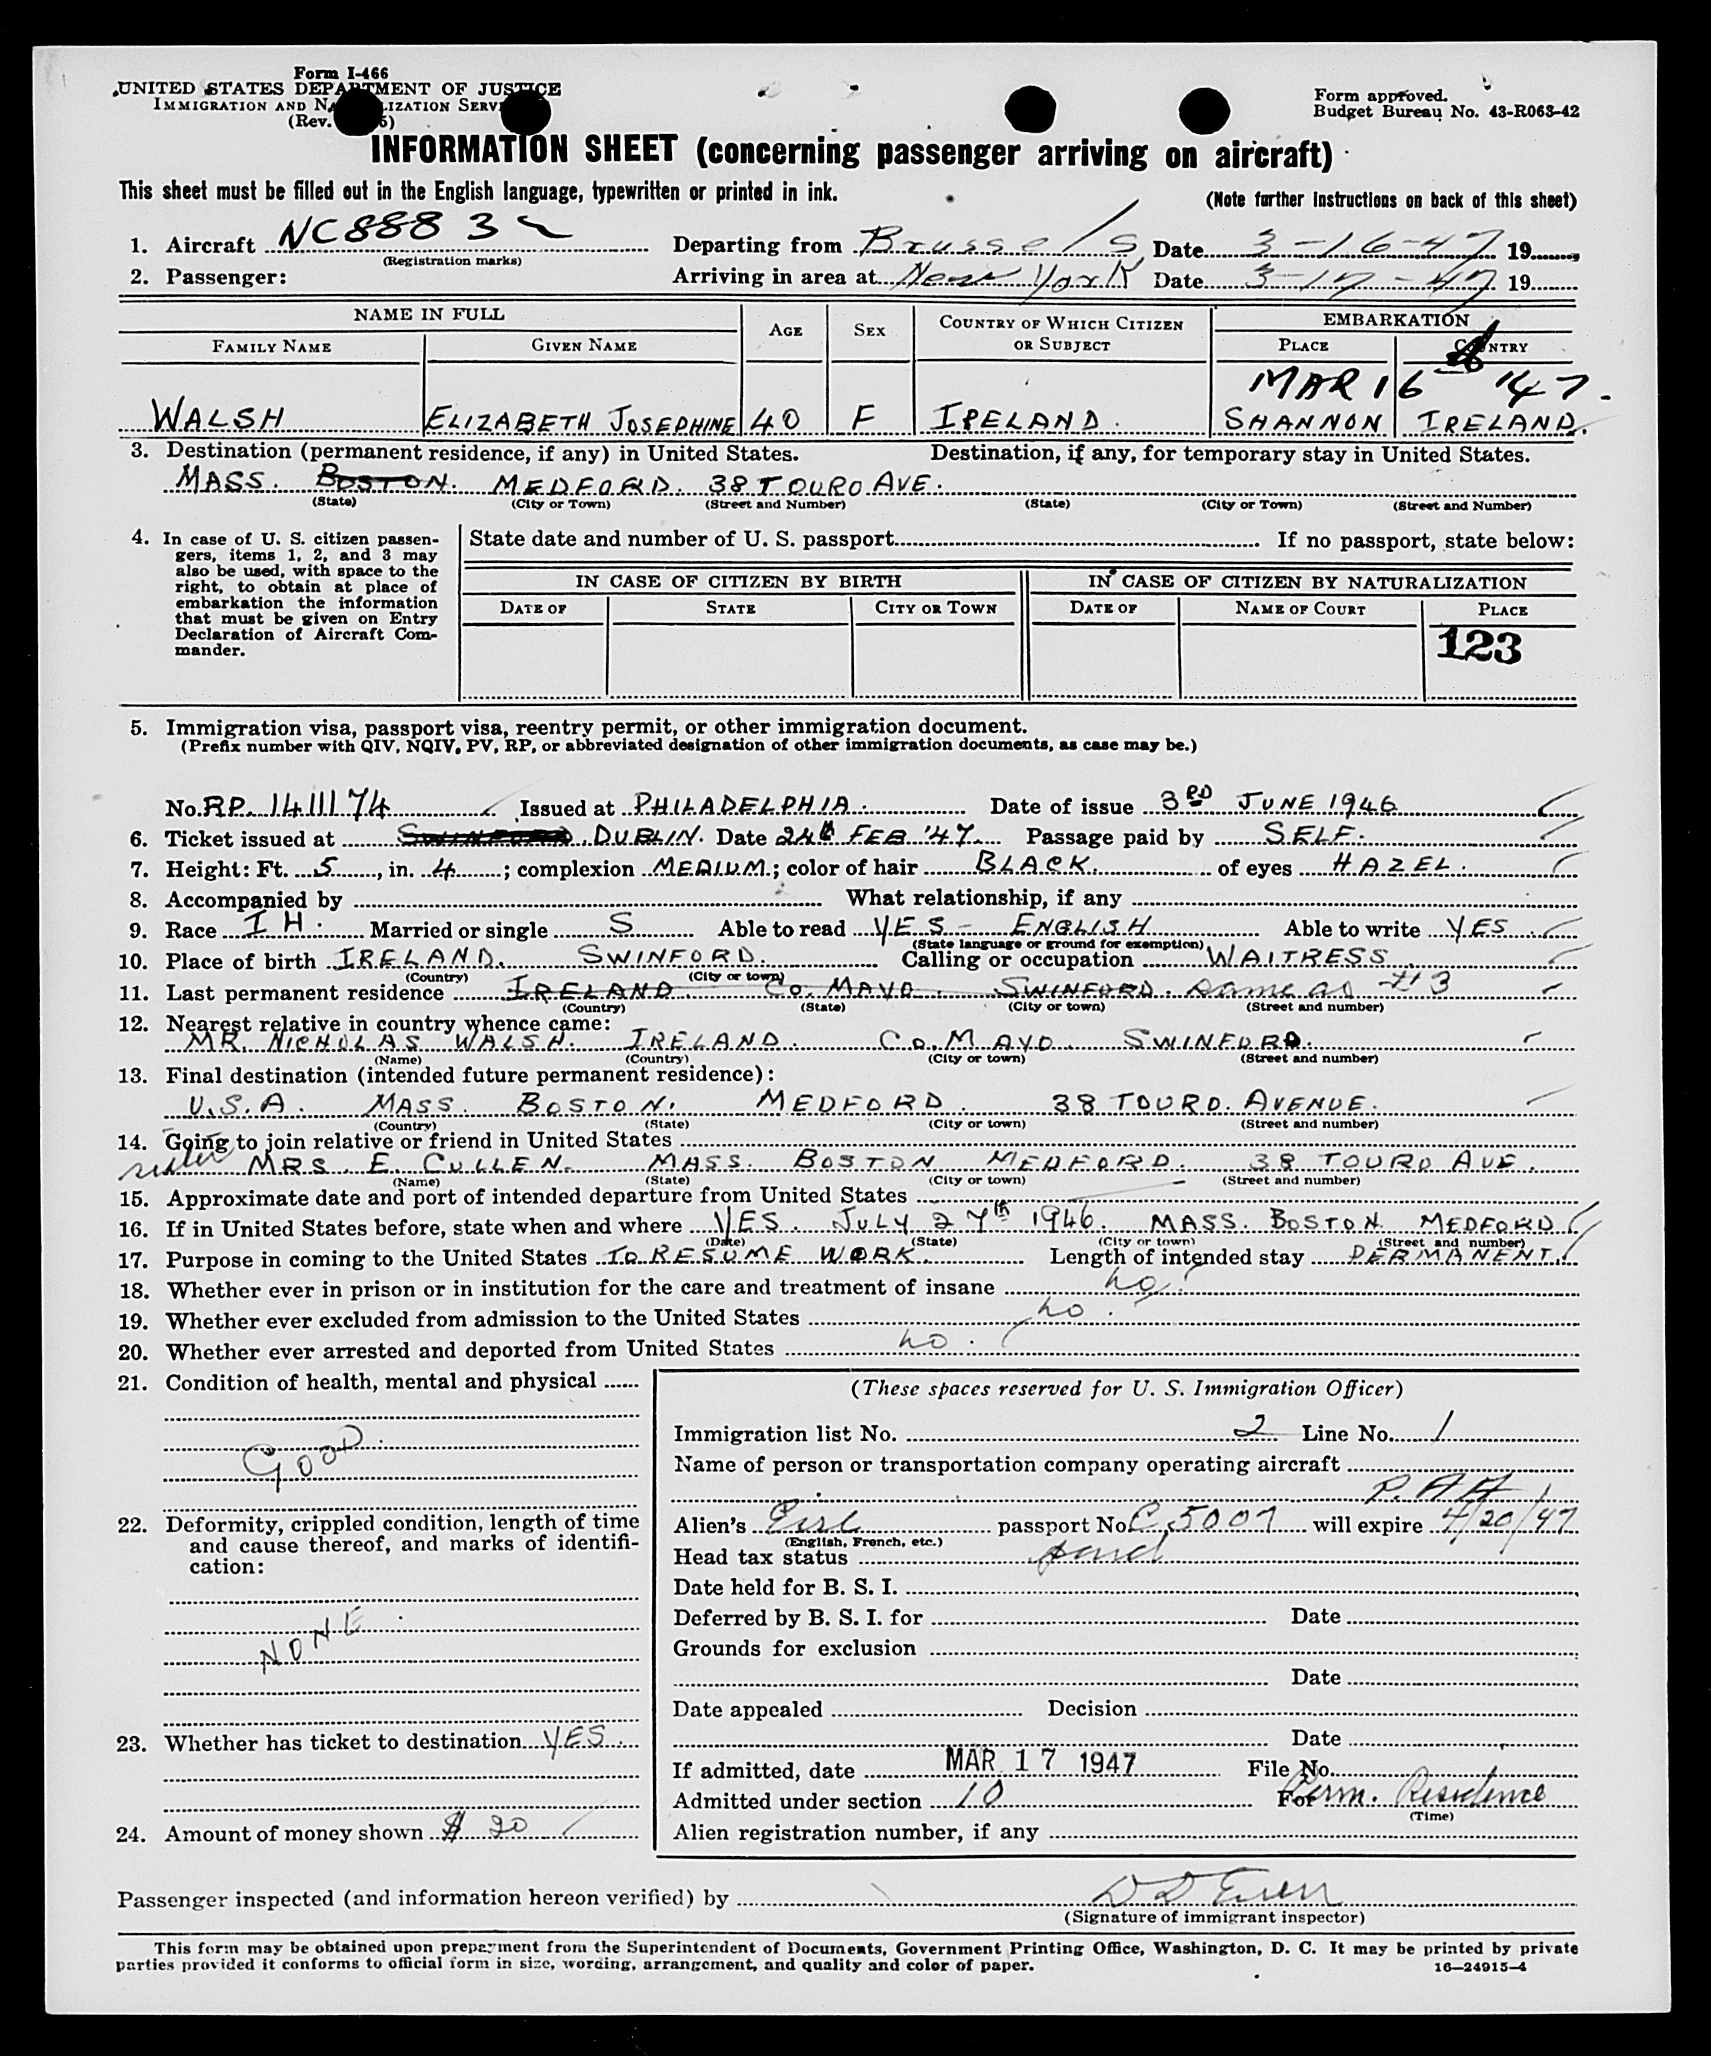 Form I-466
UNITED STATES DEPARTMENT OF JUSTICE
IMMIGRATION AND NATURALIZATION SERVICE
(Rev.
Form approved.
Budget Bureau No. 43-R063-42
INFORMATION SHEET (concerning passenger arriving on aircraft)
This sheet must be filled out in the English language, typewritten or printed in ink.
(Note further instructions on back of this sheet)
1. Aircraft NC88832 Departing from Brussels Date 3-16-47 19
(Registration marks)
2. Passenger: Arriving in area at New York Date 3-17-47 19
NAME IN FULL AGE SEX COUNTRY OF WHICH CITIZEN OR SUBJECT EMBARKATION
FAMILY NAME GIVEN NAME PLACE COUNTRY
MAR 16 '47.
WALSH ELIZABETH JOSEPHINE 40 F IRELAND. SHANNON IRELAND.
3. Destination (permanent residence, if any) in United States. Destination, if any, for temporary stay in United States.
MASS. BOSTON. MEDFORD. 38 TOURO AVE.
(State) (City or Town) (Street and Number) (State) (City or Town) (Street and Number)
4. In case of U. S. citizen passen-
gers, items 1, 2, and 3 may
also be used, with space to the
right, to obtain at place of
embarkation the information
that must be given on Entry
Declaration of Aircraft Com-
mander.
State date and number of U. S. passport If no passport, state below:
IN CASE OF CITIZEN BY BIRTH IN CASE OF CITIZEN BY NATURALIZATION
DATE OF STATE CITY OR TOWN DATE OF NAME OF COURT PLACE
123
5. Immigration visa, passport visa, reentry permit, or other immigration document.
(Prefix number with QIV, NQIV, PV, RP, or abbreviated designation of other immigration documents, as case may be.)
No. RP. 1411174 Issued at PHILADELPHIA. Date of issue 3RD JUNE 1946
6. Ticket issued at SWINFORD. DUBLIN. Date 24th FEB '47. Passage paid by SELF.
7. Height: Ft. 5, in. 4; complexion MEDIUM.; color of hair BLACK. of eyes HAZEL.
8. Accompanied by What relationship, if any
9. Race IH. Married or single S Able to read YES - ENGLISH Able to write YES
(State language or ground for exemption)
10. Place of birth IRELAND. SWINFORD. Calling or occupation WAITRESS
(Country) (City or town)
11. Last permanent residence IRELAND. Co. MAYO. SWINFORD. Same as #3
(Country) (State) (City or town) (Street and number)
12. Nearest relative in country whence came:
MR. NICHOLAS WALSH. IRELAND. Co. MAYO. SWINFORD.
(Name) (Country) (City or town) (Street and number)
13. Final destination (intended future permanent residence):
U.S.A. MASS. BOSTON. MEDFORD. 38 TOURO. AVENUE.
(Country) (State) (City or town) (Street and number)
14. Going to join relative or friend in United States
sister MRS. E. CULLEN. MASS. BOSTON MEDFORD. 38 TOURO AVE.
(Name) (State) (City or town) (Street and number)
15. Approximate date and port of intended departure from United States —
16. If in United States before, state when and where YES. JULY 27th 1946. MASS. BOSTON MEDFORD.
(Date) (State) (City or town) (Street and number)
17. Purpose in coming to the United States TO RESUME WORK. Length of intended stay PERMANENT.
18. Whether ever in prison or in institution for the care and treatment of insane no.
19. Whether ever excluded from admission to the United States no.
20. Whether ever arrested and deported from United States no.
21. Condition of health, mental and physical
GOOD.
22. Deformity, crippled condition, length of time
and cause thereof, and marks of identifi-
cation:
NONE.
23. Whether has ticket to destination YES.
24. Amount of money shown $ 20
(These spaces reserved for U. S. Immigration Officer)
Immigration list No. 2 Line No. 1
Name of person or transportation company operating aircraft
P.A.A.
Alien's Eire passport No. C 5007 will expire 4/20/47
(English, French, etc.)
Head tax status
Date held for B. S. I.
Deferred by B. S. I. for Date
Grounds for exclusion
Date
Date appealed Decision
Date
If admitted, date MAR 17 1947 File No.
Admitted under section 10 For Perm. Residence
(Time)
Alien registration number, if any
Passenger inspected (and information hereon verified) by
(Signature of immigrant inspector)
This form may be obtained upon prepayment from the Superintendent of Documents, Government Printing Office, Washington, D. C. It may be printed by private
parties provided it conforms to official form in size, wording, arrangement, and quality and color of paper.
16—24915-4